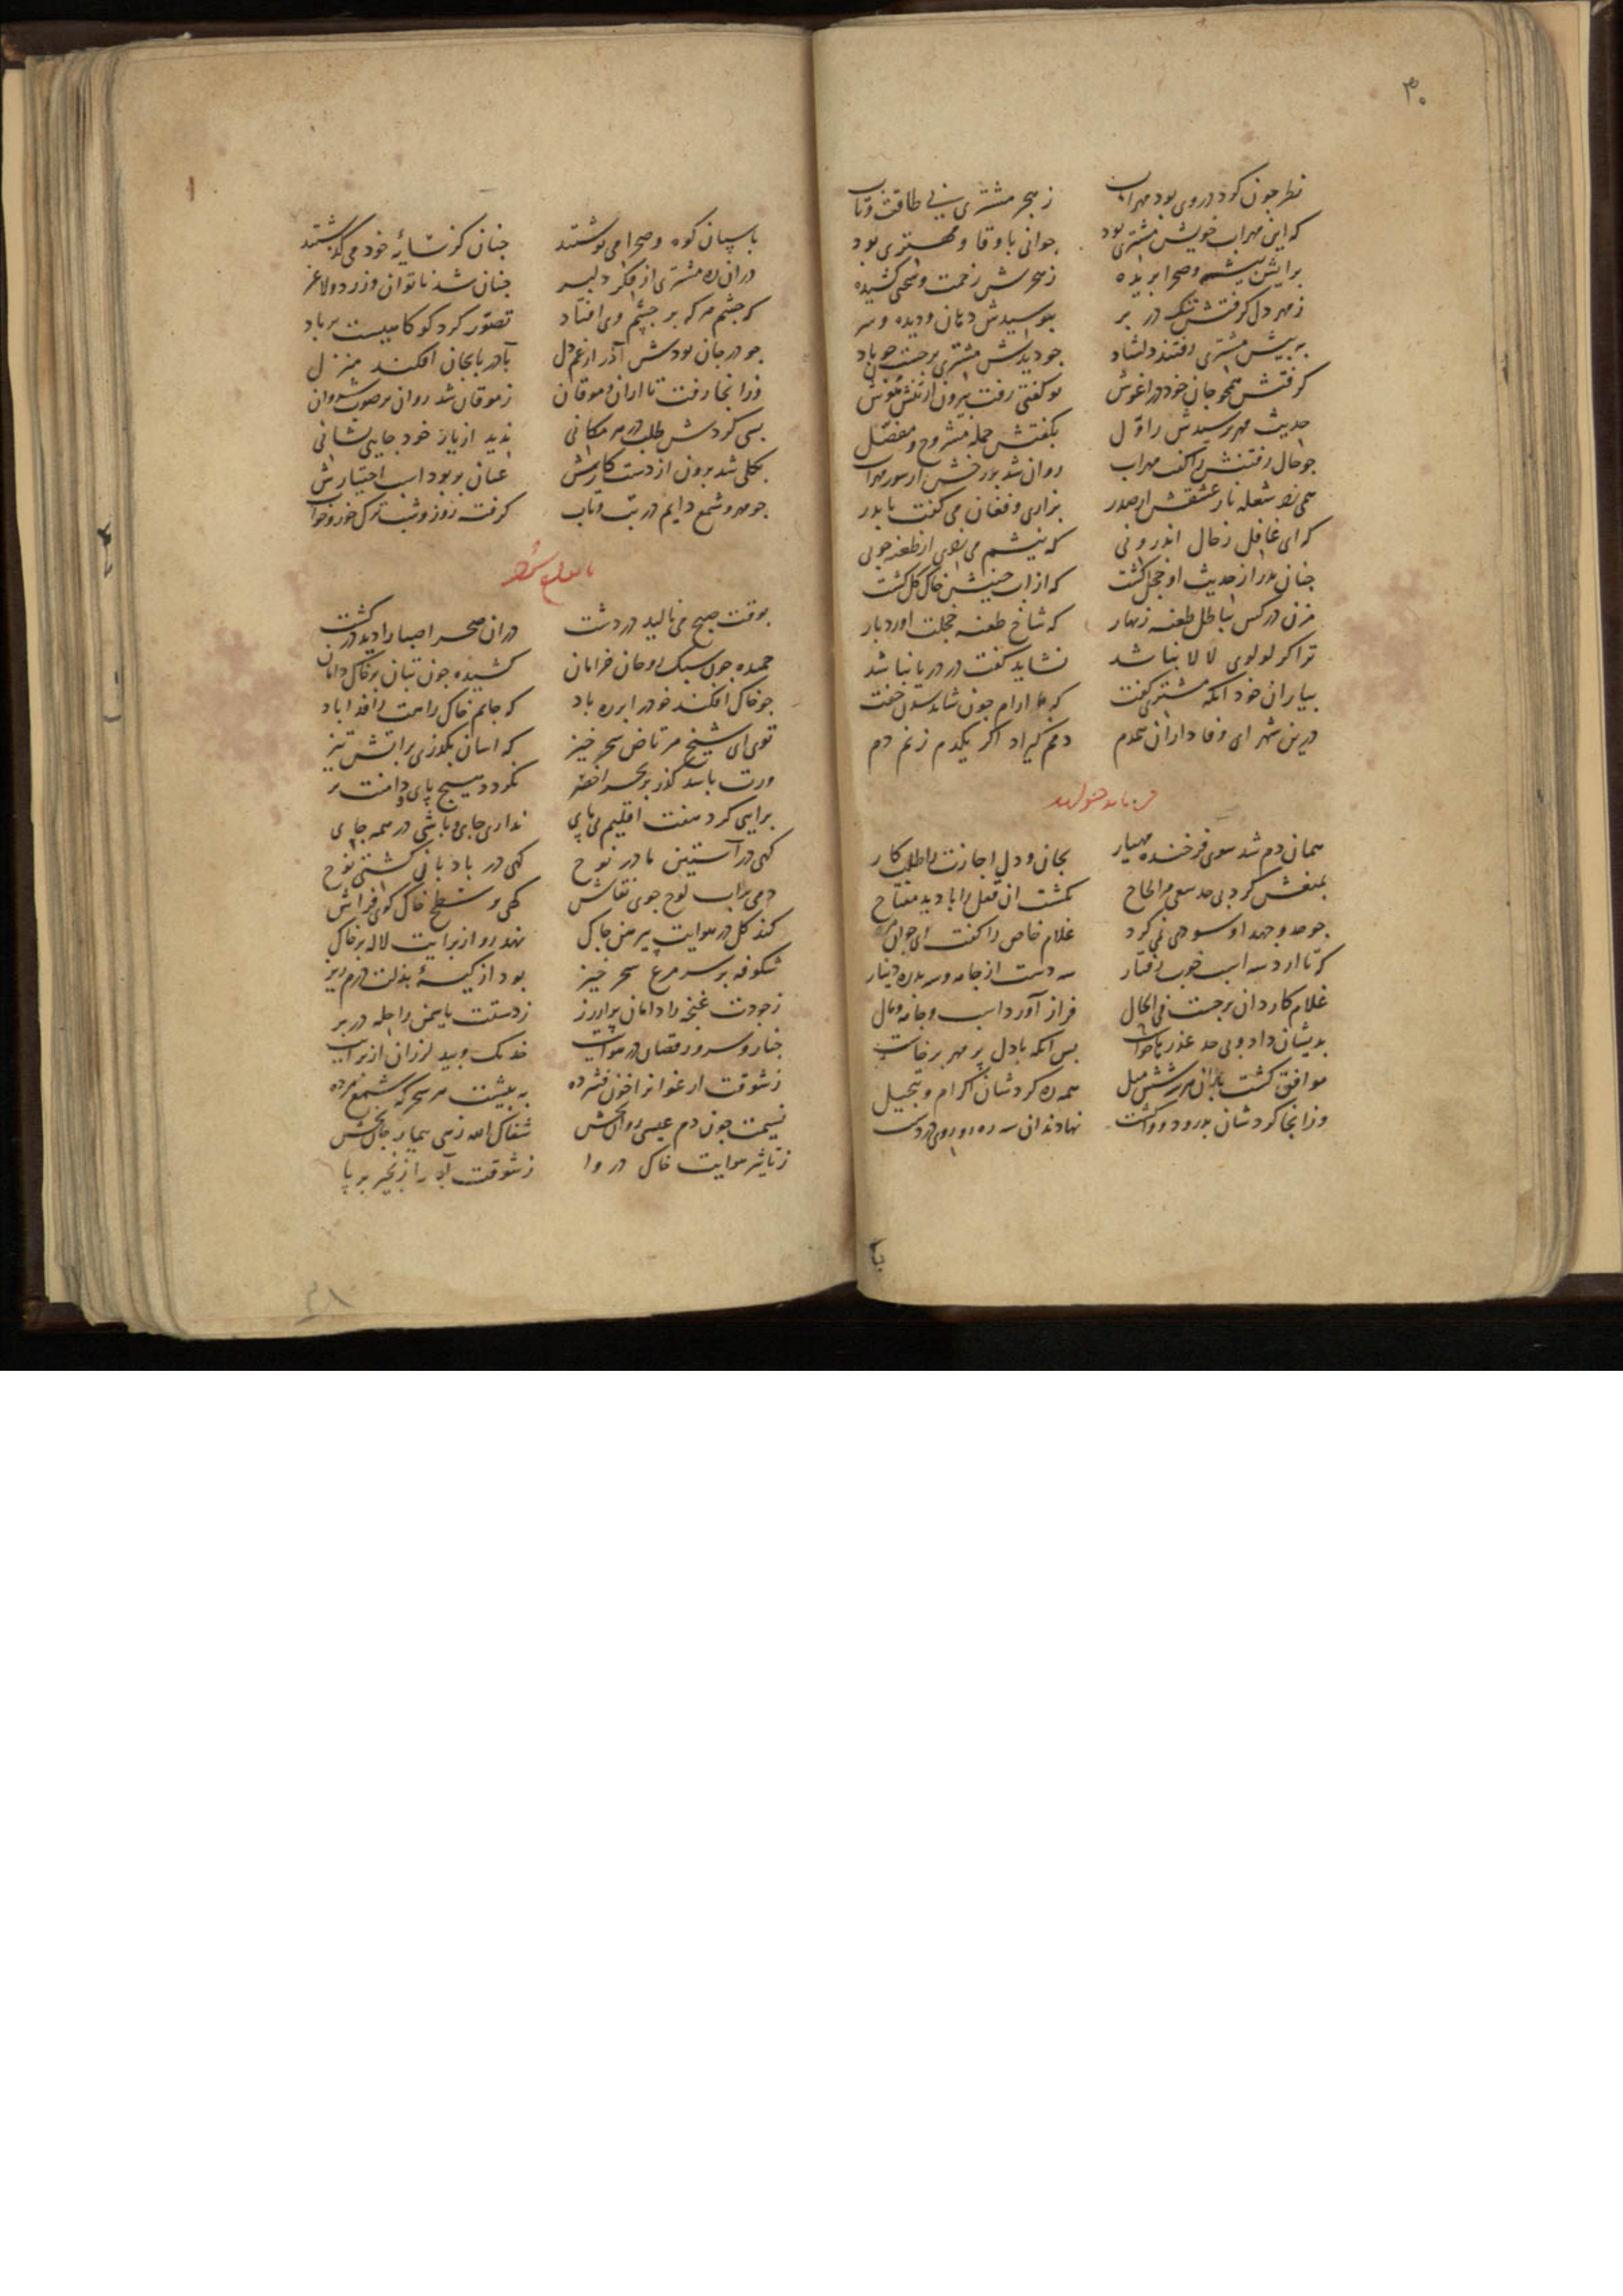 ۳۰
نظر چون کرد در وی بود مهراب ز هجر مشتری بی طاقت و تاب
که این مهراب خویش مشتری بود جوانی با وفا و مهتری بود
برایش بیشه و صحرا بریده ز هجرش زحمت و سختی کشیده
ز مهر دل گرفتش تنگ در بر ببوسیدش دهان و دیده و سر
به پیش مشتری رفتند دلشاد جو دیدش مشتری برجست جون باد
گرفتش همجو جان خود در اغوش تو گفتی رفت بیرون از تنش هوش
حدیث مهر پرسیدش ز اول بگفتش جمله مشروح و مفصل
جو حال رفتنش را گفت مهراب روان شد
همی زد شعله نار عشقش از صدر بزاری و فغان می گفت با بدر
که ای غافل ز حال اندرونی که نیشم می زدی از طعنه جونی
جنان بدر از حدیث او خجل گشت که از اب جبینش خاک گل گشت
مزن در کس بباطل طعنه زنهار که شاخ طعنه خجلت اورد بار
ترا گر لولوی لالا نباشد نشاید گفت در دریا نباشد
بیاران خود انگه مشتری گفت که ارام جون شاید خفت
درین شهر ای وفاداران همدم دمم گیراد اگر یکدم زنم دم
همان دم شد سوی فرخنده مهیار بجان و دل اجازت را طلب کار
بمنعش کرد بی حد سعی و الحاح نگشت ان قفل را با دید مفتاح
جو جد و جهد او سودی نمی کرد غلام خاص را گفت ای جوان
که تا ارد سه اسب خوب رفتار سه دست از جامه و سه بدره دینار
غلام کاردان برجست فی الحال فراز آورد اسب و جامه و مال
بدیشان داد و بی حد عذر خواست پس انگه با دل پر مهر برخاست
موافق گشت با ایشان شش میل همه ره کردشان اکرام و تبجیل
وز انجا کردشان بدرود و واگشت نهادند ان سه ره رو روی در دشت
با
باسبان کوه و صحرا می نوشتند جنان کز سایه خود می گذشتند
دران ره مشتری از فکر دلبر جنان شد ناتوان و زرد و لاغر
که جشم هر که بر جشم وی افتاد تصور کرد کو کاهیست بر باد
جو در جان بودش آذر از غم دل بآذربایجان افکند منزل
وز انجا رفت تا اران و موقان ز موقان شد روان بر صوب شروان
بسی کردش طلب در هر مکانی ندید از یار خود جایی نشانی
بکلی شد برون از دست کارش عنان بربود اسب اختیارش
جو مهر و شمع دایم در تب و تاب گرفته روز و شب ترک خور و خواب
بوقت صبح می نالید در دشت دران صحرا صبا را دید در گشت
جمیده جون سبک روحان خرامان کشیده جون بتان بر خاک دامان
جو خاک افکند خود را بر ره باد که جانم خاک راهت را فدا باد
توی ای شیخ مرتاض سحر خیز که اسان بگذری بر آتش تیز
ورت باشد گذر بر بحر اخضر نگردد هیج پای و دامنت تر
برآیی گرد هفت اقلیم بی پای نداری جای و باشی در همه جای
گهی در آستین مادر نوح گهی در بادبان کشتی نوح
دمی بر اب لوح جوی نقاش گهی بر سطح خاک کوی فراش
کند گل در هوایت پیرهن جاک نهد رو از برایت لاله بر خاک
شکوفه بر سر مرغ سحر خیز بود از کیسه بذلت درم ریز
ز جودت غنجه را دامان پر از زر ز دستت یاسمن را حله در بر
جنار و سرو رقصان در هوایت خدنگ و بید لرزان از برایت
ز شوقت ارغوانرا خون فشرده به پیشت هر سحرگه شمع مرده
نسیمت جون دم عیسی روان بخش شفاک الله زهی بیمار جان بخش
ز تاثیر هوایت خاک در وا ز شوقت آب را زنجیر بر پا